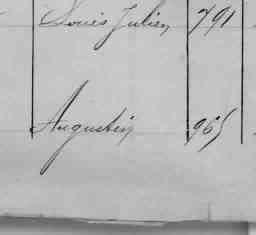 Louis Julien 791
Augustin 965